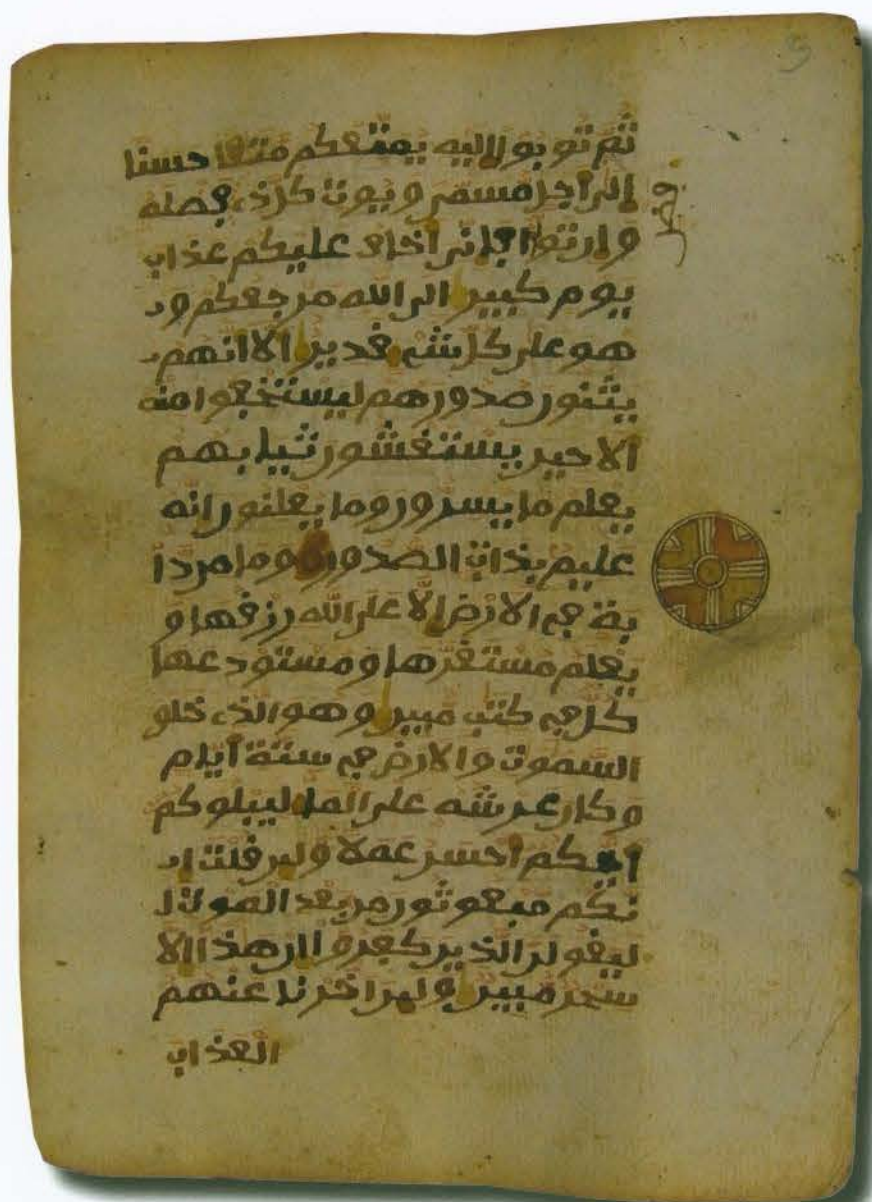 ثم توبوا اليه يمتعكم متعا حسنا
الى اجل مسمى ويوت كل ذى فضله
وان تولوا فانى اخاف عليكم عذاب
يوم كبير الى الله مرجعكم و
هو على كل شىء قدير الا انهم
يثنون صدورهم ليستخفوا منه
الا حين يستغشون ثيابهم
يعلم ما يسرون وما يعلنون انه
عليم بذات الصدور وما من دا
بة فى الارض الا على الله رزقها و
يعلم مستقرها ومستودعها
كل فى كتب مبين وهو الذى خلق
السموت والارض فى ستة ايام
وكان عرشه على الما ليبلوكم
ايكم احسن عملا ولين قلت ا
نكم مبعوثون من بعد الموت ل
ليقولن الذين كفروا ان هذا الا
سحر مبين ولين اخرنا عنهم
العذاب